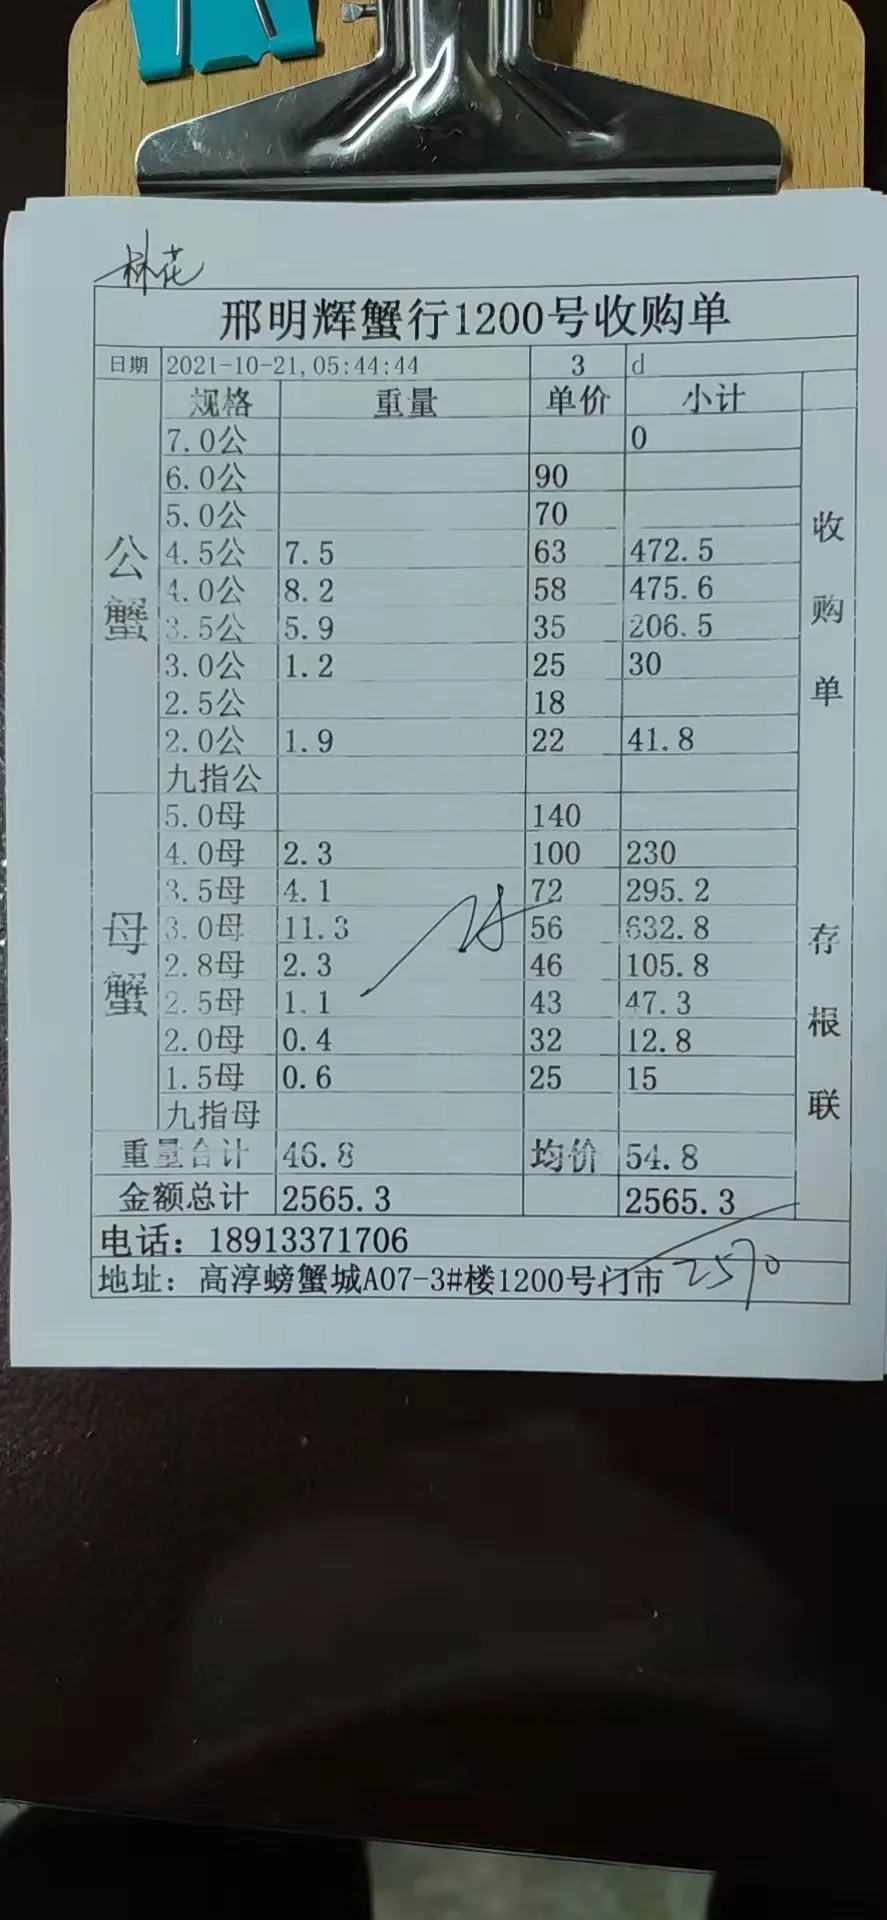 林花
邢明辉蟹行1200号收购单
日期 2021-10-21,05:44:44 3 d
规格 重量 单价 小计
公蟹
7.0公 0
6.0公 90
5.0公 70
4.5公 7.5 63 472.5
4.0公 8.2 58 475.6
3.5公 5.9 35 206.5
3.0公 1.2 25 30
2.5公 18
2.0公 1.9 22 41.8
九指公
母蟹
5.0母 140
4.0母 2.3 100 230
3.5母 4.1 72 295.2
3.0母 11.3 56 632.8
2.8母 2.3 46 105.8
2.5母 1.1 43 47.3
2.0母 0.4 32 12.8
1.5母 0.6 25 15
九指母
重量合计 46.8 均价 54.8
金额总计 2565.3 2565.3
电话：18913371706
地址：高淳螃蟹城A07-3#楼1200号门市 2570
收购单 存根联